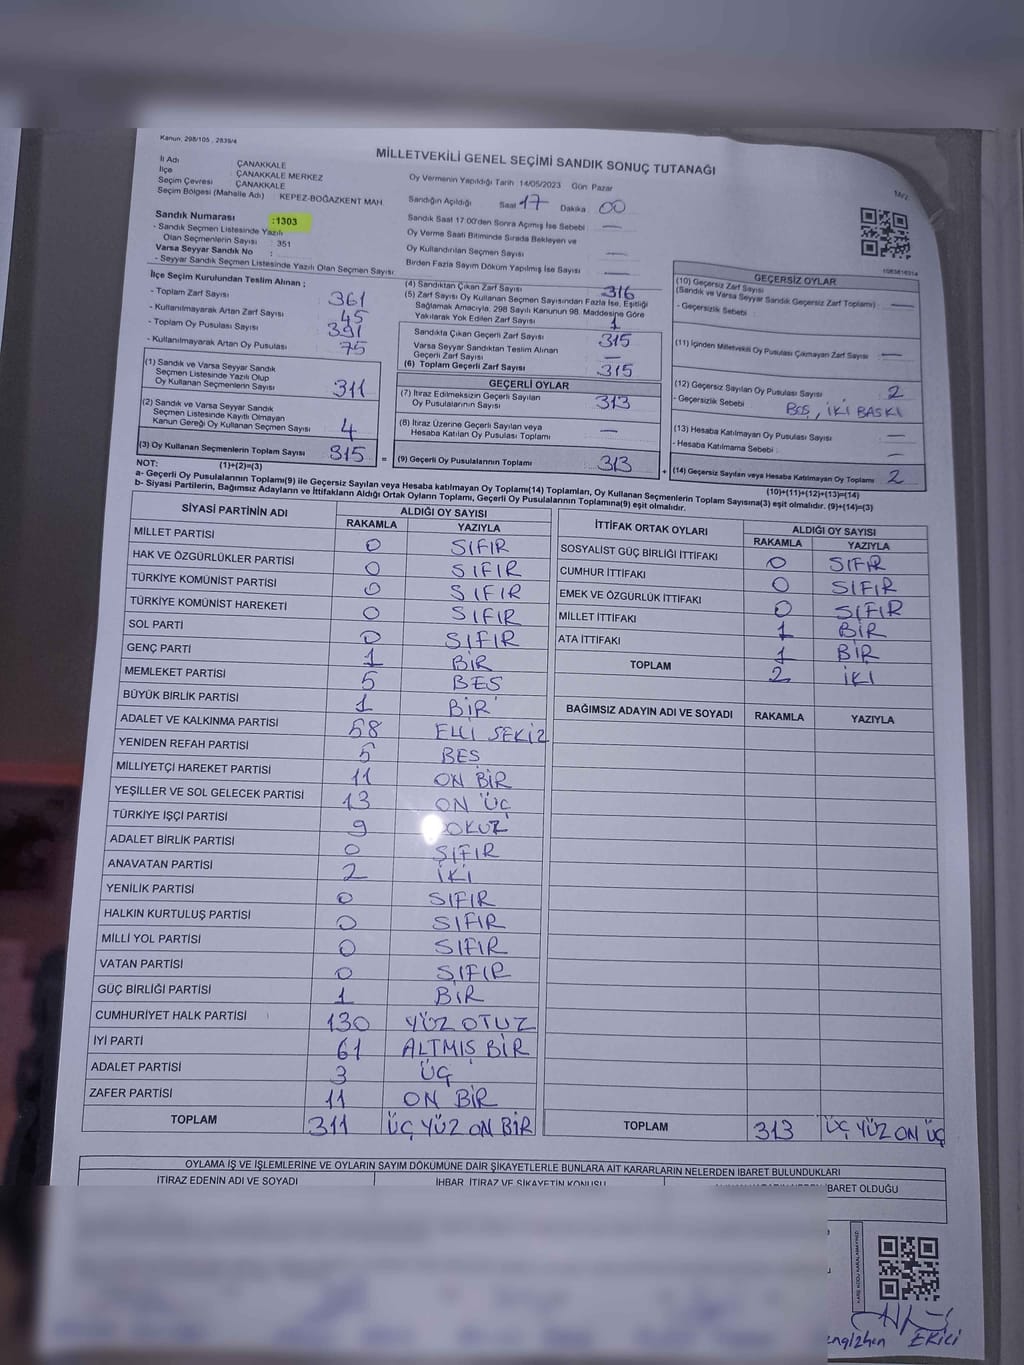 Kanun: 298/105 , 2839/4
MİLLETVEKİLİ GENEL SEÇİMİ SANDIK SONUÇ TUTANAĞI
İl Adı ÇANAKKALE
İlçe ÇANAKKALE MERKEZ
Seçim Çevresi ÇANAKKALE
Seçim Bölgesi (Mahalle Adı) : KEPEZ-BOĞAZKENT MAH.
Sandık Numarası :1303
- Sandık Seçmen Listesinde Yazılı
Olan Seçmenlerin Sayısı : 351
Varsa Seyyar Sandık No :
- Seyyar Sandık Seçmen Listesinde Yazılı Olan Seçmen Sayısı:
Oy Vermenin Yapıldığı Tarih 14/05/2023 Gün Pazar
Sandığın Açıldığı Saat 17 Dakika 00
Sandık Saat 17.00'den Sonra Açılmış İse Sebebi —
Oy Verme Saati Bitiminde Sırada Bekleyen ve
Oy Kullandırılan Seçmen Sayısı —
Birden Fazla Sayım Döküm Yapılmış İse Sayısı —
Mrz.
İlçe Seçim Kurulundan Teslim Alınan ;
- Toplam Zarf Sayısı 361
- Kullanılmayarak Artan Zarf Sayısı 45
- Toplam Oy Pusulası Sayısı 391
- Kullanılmayarak Artan Oy Pusulası 75
(1) Sandık ve Varsa Seyyar Sandık
Seçmen Listesinde Yazılı Olup
Oy Kullanan Seçmenlerin Sayısı 311
(2) Sandık ve Varsa Seyyar Sandık
Seçmen Listesinde Kayıtlı Olmayan
Kanun Gereği Oy Kullanan Seçmen Sayısı 4
(3) Oy Kullanan Seçmenlerin Toplam Sayısı 315 =
(4) Sandıktan Çıkan Zarf Sayısı 316
(5) Zarf Sayısı Oy Kullanan Seçmen Sayısından Fazla İse, Eşitliği
Sağlamak Amacıyla, 298 Sayılı Kanunun 98. Maddesine Göre
Yakılarak Yok Edilen Zarf Sayısı 1
Sandıkta Çıkan Geçerli Zarf Sayısı 315
Varsa Seyyar Sandıktan Teslim Alınan
Geçerli Zarf Sayısı —
(6) Toplam Geçerli Zarf Sayısı 315
GEÇERLİ OYLAR
(7) İtiraz Edilmeksizin Geçerli Sayılan
Oy Pusulalarının Sayısı 313
(8) İtiraz Üzerine Geçerli Sayılan veya
Hesaba Katılan Oy Pusulası Toplamı —
(9) Geçerli Oy Pusulalarının Toplamı 313 +
GEÇERSİZ OYLAR
(10) Geçersiz Zarf Sayısı
(Sandık ve Varsa Seyyar Sandık Geçersiz Zarf Toplamı) —
- Geçersizlik Sebebi :
(11) İçinden Milletvekili Oy Pusulası Çıkmayan Zarf Sayısı —
(12) Geçersiz Sayılan Oy Pusulası Sayısı 2
- Geçersizlik Sebebi : BOŞ, İKİ BASKI
(13) Hesaba Katılmayan Oy Pusulası Sayısı —
- Hesaba Katılmama Sebebi : —
(14) Geçersiz Sayılan veya Hesaba Katılmayan Oy Toplamı 2
NOT: (1)+(2)=(3) (10)+(11)+(12)+(13)=(14)
a- Geçerli Oy Pusulalarının Toplamı(9) ile Geçersiz Sayılan veya Hesaba katılmayan Oy Toplamı(14) Toplamları, Oy Kullanan Seçmenlerin Toplam Sayısına(3) eşit olmalıdır. (9)+(14)=(3)
b- Siyasi Partilerin, Bağımsız Adayların ve İttifakların Aldığı Ortak Oyların Toplamı, Geçerli Oy Pusulalarının Toplamına(9) eşit olmalıdır.
SİYASİ PARTİNİN ADI ALDIĞI OY SAYISI
RAKAMLA YAZIYLA
MİLLET PARTİSİ 0 SIFIR
HAK VE ÖZGÜRLÜKLER PARTİSİ 0 SIFIR
TÜRKİYE KOMÜNİST PARTİSİ 0 SIFIR
TÜRKİYE KOMÜNİST HAREKETİ 0 SIFIR
SOL PARTİ 0 SIFIR
GENÇ PARTİ 1 BİR
MEMLEKET PARTİSİ 5 BES
BÜYÜK BİRLİK PARTİSİ 1 BİR
ADALET VE KALKINMA PARTİSİ 58 ELLİ SEKİZ
YENİDEN REFAH PARTİSİ 5 BES
MİLLİYETÇİ HAREKET PARTİSİ 11 ON BİR
YEŞİLLER VE SOL GELECEK PARTİSİ 13 ON ÜÇ
TÜRKİYE İŞÇİ PARTİSİ 9 DOKUZ
ADALET BİRLİK PARTİSİ 0 SIFIR
ANAVATAN PARTİSİ 2 İKİ
YENİLİK PARTİSİ 0 SIFIR
HALKIN KURTULUŞ PARTİSİ 0 SIFIR
MİLLİ YOL PARTİSİ 0 SIFIR
VATAN PARTİSİ 0 SIFIR
GÜÇ BİRLİĞİ PARTİSİ 1 BİR
CUMHURİYET HALK PARTİSİ 130 YÜZ OTUZ
İYİ PARTİ 61 ALTMIŞ BİR
ADALET PARTİSİ 3 ÜÇ
ZAFER PARTİSİ 11 ON BİR
TOPLAM 311 ÜÇ YÜZ ON BİR
İTTİFAK ORTAK OYLARI ALDIĞI OY SAYISI
RAKAMLA YAZIYLA
SOSYALİST GÜÇ BİRLİĞİ İTTİFAKI 0 SIFIR
CUMHUR İTTİFAKI 0 SIFIR
EMEK VE ÖZGÜRLÜK İTTİFAKI 0 SIFIR
MİLLET İTTİFAKI 1 BİR
ATA İTTİFAKI 1 BİR
TOPLAM 2 İKİ
BAĞIMSIZ ADAYIN ADI VE SOYADI RAKAMLA YAZIYLA
TOPLAM 313 ÜÇ YÜZ ON ÜÇ
OYLAMA İŞ VE İŞLEMLERİNE VE OYLARIN SAYIM DÖKÜMÜNE DAİR ŞİKAYETLERLE BUNLARA AİT KARARLARIN NELERDEN İBARET BULUNDUKLARI
İTİRAZ EDENİN ADI VE SOYADI İHBAR, İTİRAZ VE ŞİKAYETİN KONUSU İBARET OLDUĞU
KARE KODU KARALAMAYINIZ!
EKİCİ